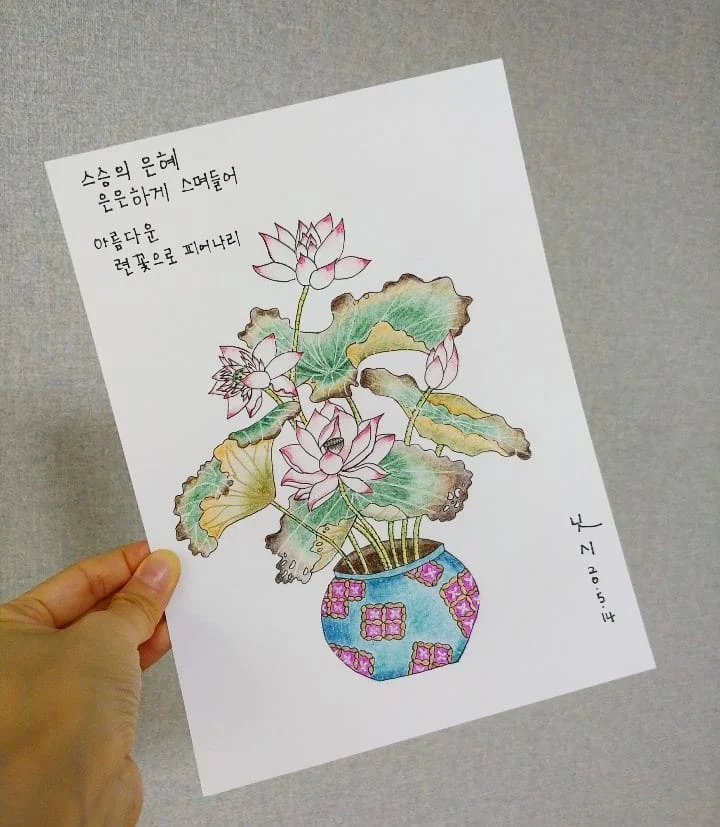 스승의 은혜
은은하게 스며들어
아름다운
련꽃으로 피어나리
시
20.5.14